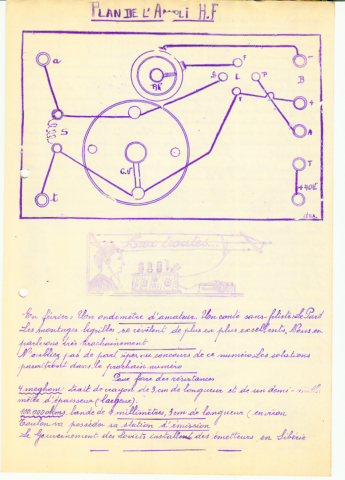 PLAN DE L'AMPLI H.F
a
F
B
G
L
P
Rh
F
+
S
A
C.V
T
t
+40V.
Aux écoutes...
En février: Un ondemètre d'amateur. Un conte sans-filiste. Le
Les montages reflètes se révèlent de plus en plus excellents. Nous en
parlerons très prochainement
N'oubliez pas de participer au concours de ce numéro. Les solutions
paraîtront dans le prochain numéro
Pour faire des résistances
4 megohms: trait de crayon de 3 cm de longueur et de un demi-milli-
mètre d'épaisseur (largeur).
100.000 ohms, bande de 6 millimètres, 3 cm de longueur (environ
Toulon va posséder sa station d'émission
Le Gouvernement des Soviets installent des émetteurs en Sibérie